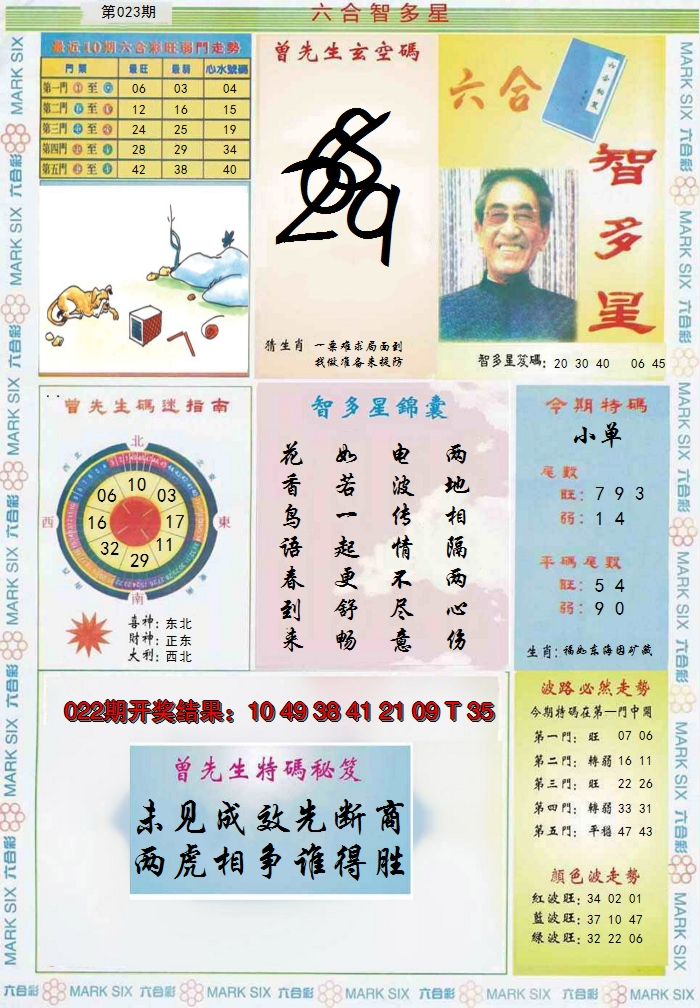 第023期
六合智多星
最近10期六合彩旺弱門走勢
門類 最旺 最弱 心水號碼
第一門 至 06 03 04
第二門 至 12 16 15
第三門 至 24 25 19
第四門 至 28 29 34
第五門 至 42 38 40
曾先生玄空碼
猜生肖 一票难求局面到
我做准备来提防
六合
智多星
智多星笈碼: 20 30 40 06 45
曾先生碼迷指南
北
06 10 03
西 16 17 東
32 29 11
南
喜神: 东北
财神: 正东
大利: 西北
智多星錦囊
两地相隔两心伤
电波传情不尽意
如若一起更舒畅
花香鸟语春到来
今期特碼
小单
尾數
旺: 7 9 3
弱: 1 4
平碼尾數
旺: 5 4
弱: 9 0
生肖: 福如东海因矿藏
022期开奖结果: 10 49 38 41 21 09 T 35
曾先生特碼秘笈
未见成效先断商
两虎相争谁得胜
波路必然走勢
今期特碼在第一門中開
第一門: 旺 07 06
第二門: 轉弱 16 11
第三門: 旺 22 26
第四門: 轉弱 33 31
第五門: 平穩 47 43
顏色波走勢
紅波旺: 34 02 01
藍波旺: 37 10 47
绿波旺: 32 22 06
六合彩 MARK SIX 六合彩 MARK SIX 六合彩 MARK SIX 六合彩 MARK SIX 六合彩